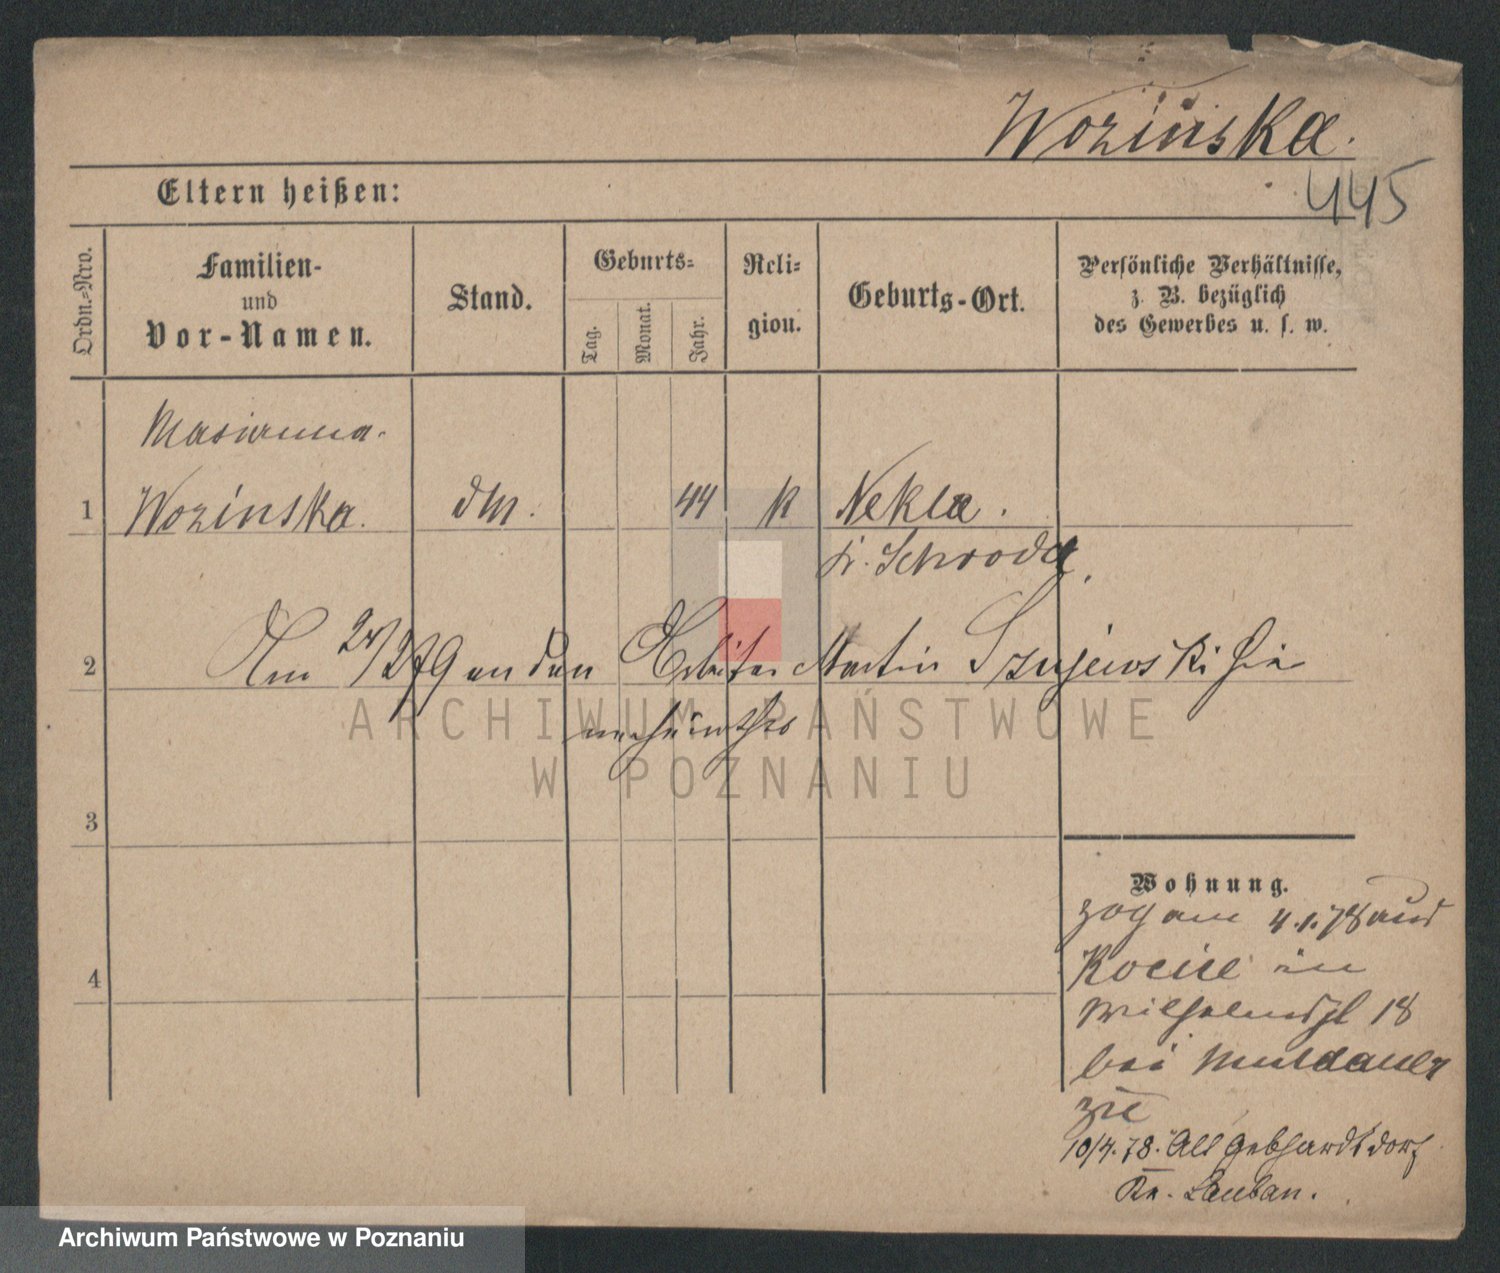 Wozinska.
445
Eltern heißen:
Ordn.-Nro.
Familien-
und
Vor-Namen.
Stand.
Geburts-
Tag.
Monat.
Jahr.
Reli-
gion.
Geburts-Ort.
Persönliche Verhältnisse,
z. B. bezüglich
des Gewerbes u. s. w.
Marianna
1 Wozinska. dM. 44 K Nekla.
Kr. Schroda,
2 Am 2/279 an den Arbeiter Martin Szujewski hier
verheirathet
ARCHIWUM PAŃSTWOWE
W POZNANIU
3
4
Wohnung.
zog am 4.1.78 aus
in
Wilhelmspl 18
bei Muldauer
zu
10/4.78. Alt Gebhardsdorf
Kr. Lauban.
Archiwum Państwowe w Poznaniu